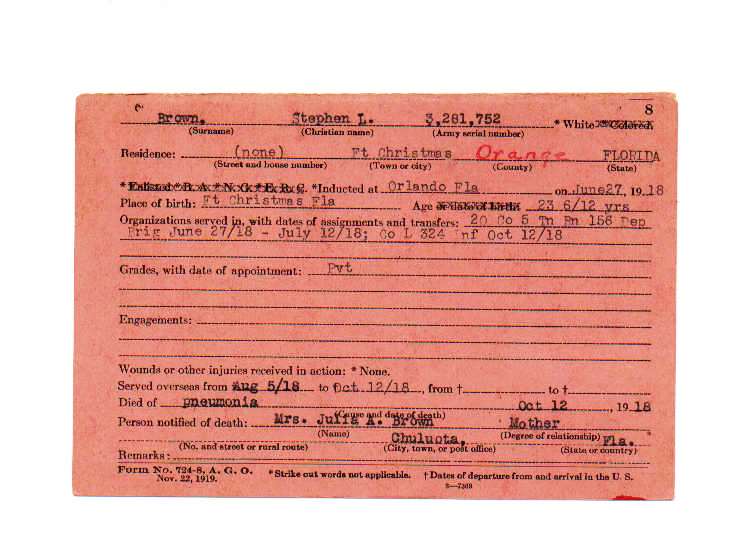 8
Brown. Stephen L. 3,281,752 * White Colored.
(Surname) (Christian name) (Army serial number)
Residence: (none) Ft Christmas Orange FLORIDA
(Street and house number) (Town or city) (County) (State)
* Enlisted * R. A. * N. G. * E. R. C. *Inducted at Orlando Fla on June27, 1918
Place of birth: Ft Christmas Fla Age 23 6/12 yrs
Organizations served in, with dates of assignments and transfers: 20 Co 5 Tn Bn 156 Dep
Brig June 27/18 - July 12/18; Co L 324 Inf Oct 12/18
Grades, with date of appointment: Pvt
Engagements:
Wounds or other injuries received in action: * None.
Served overseas from Aug 5/18 to Oct 12/18, from † to †
Died of pneumonia Oct 12, 1918
(Cause and date of death)
Person notified of death: Mrs. Julia A. Brown Mother
(Name) (Degree of relationship)
Chuluota, Fla.
(No. and street or rural route) (City, town, or post office) (State or country)
Remarks:
Form No. 724-8, A. G. O. *Strike out words not applicable. † Dates of departure from and arrival in the U. S.
Nov. 22, 1919. 3—7369